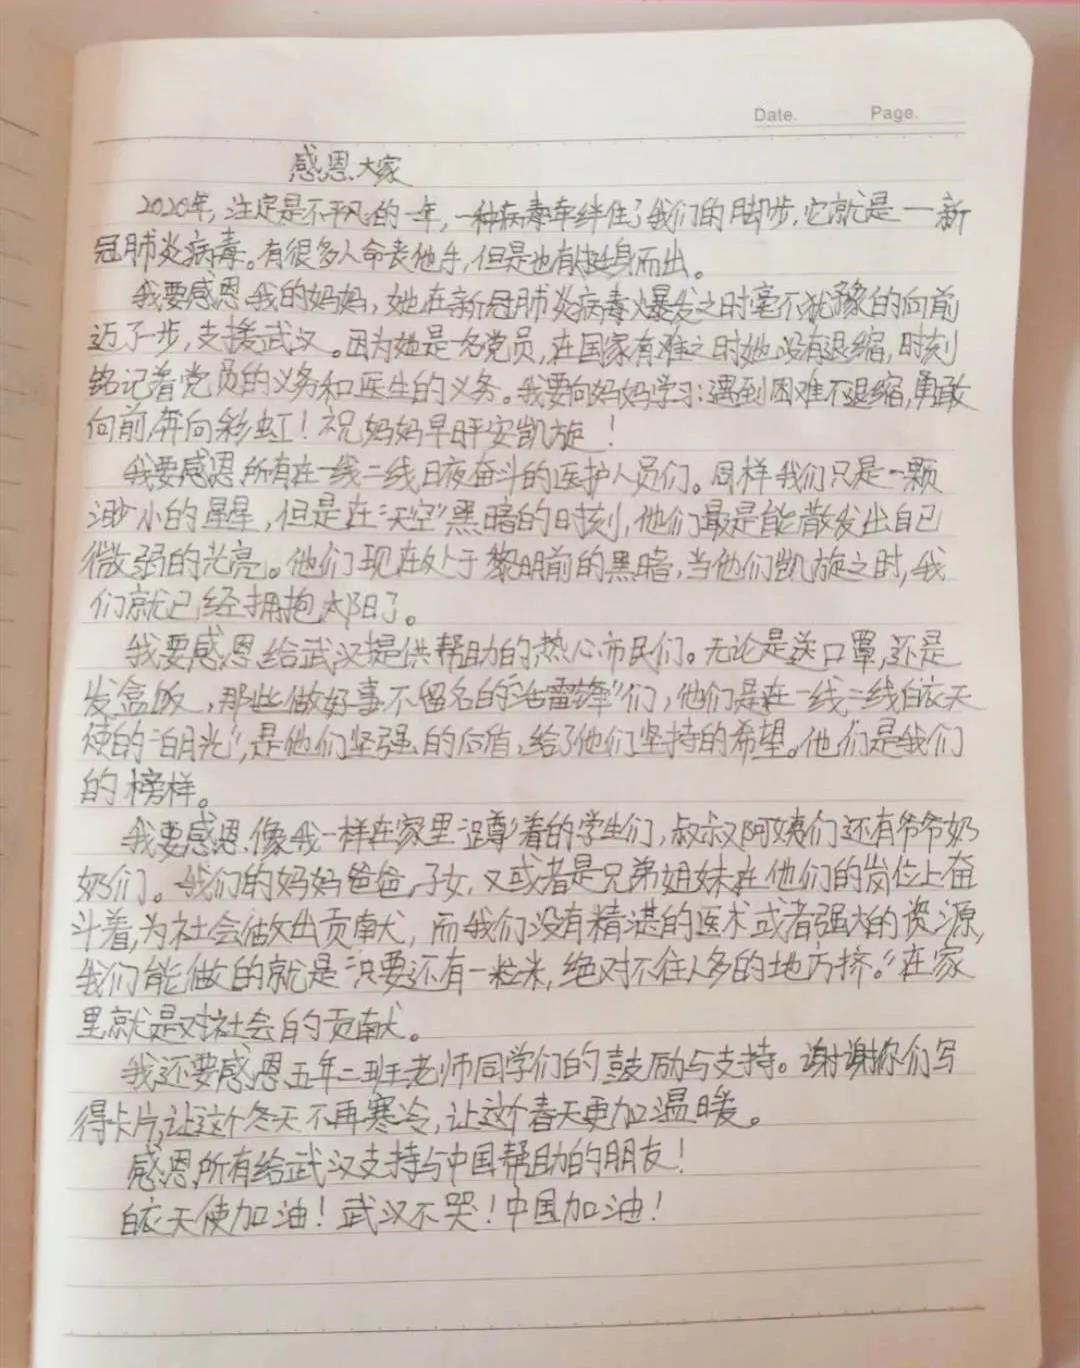 Date. Page.
感恩大家
2020年，注定是不平凡的一年，一种病毒牵绊住了我们的脚步，它就是——新
冠肺炎病毒。有很多人命丧他手，但是也有挺身而出。
我要感恩我的妈妈，她在新冠肺炎病毒爆发之时毫不犹豫的向前
迈了一步，支援武汉。因为她是一名党员，在国家有难之时她没有退缩，时刻
铭记着党员的义务和医生的义务。我要向妈妈学习：遇到困难不退缩，勇敢
向前，奔向彩虹！祝妈妈早日平安凯旋！
我要感恩所有在一线二线日夜奋斗的医护人员们。同样我们只是一颗
渺小的星星，但是在“天空”黑暗的时刻，他们最是能散发出自己
微弱的光亮。他们现在处于黎明前的黑暗，当他们凯旋之时，我
们就已经拥抱太阳了。
我要感恩给武汉提供帮助的热心市民们。无论是送口罩，还是
发盒饭，那些做好事不留名的“活雷锋”们，他们是在一线二线白衣天
使的“白月光”，是他们坚强的后盾，给了他们坚持的希望。他们是我们
的榜样。
我要感恩像我一样在家里 着的学生们，叔叔阿姨们还有爷爷奶
奶们。我们的妈妈爸爸，子女，又或者是兄弟姐妹在他们的岗位上奋
斗着，为社会做出贡献，而我们没有精湛的医术或者强大的资源，
我们能做的就是“只要还有一粒米，绝对不往人多的地方挤。”在家
里就是对社会的贡献。
我还要感恩五年二班老师同学们的鼓励与支持。谢谢你们写
得卡片，让这个冬天不再寒冷，让这个春天更加温暖。
感恩所有给武汉支持与中国帮助的朋友！
白衣天使加油！武汉不哭！中国加油！